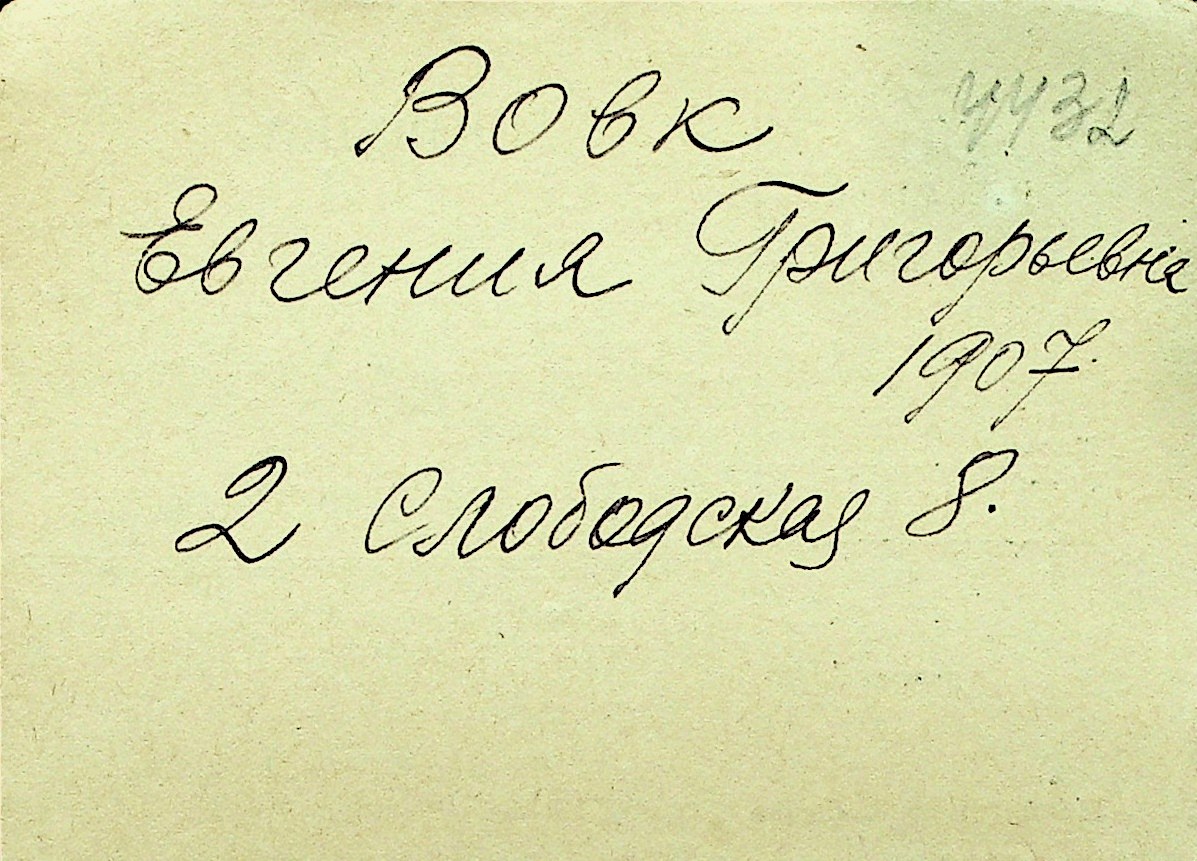 4432
Вовк
Евгения Григорьевна
1907
2 Слободская 8.